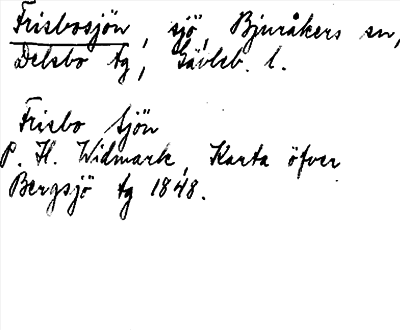 Frisbosjön, sjö, Bjuråkers sn,
Delsbo tg, Gävleb. l.
Frisbo Sjön
P. H. Widmark, Karta öfver
Bergsjö tg 1848.